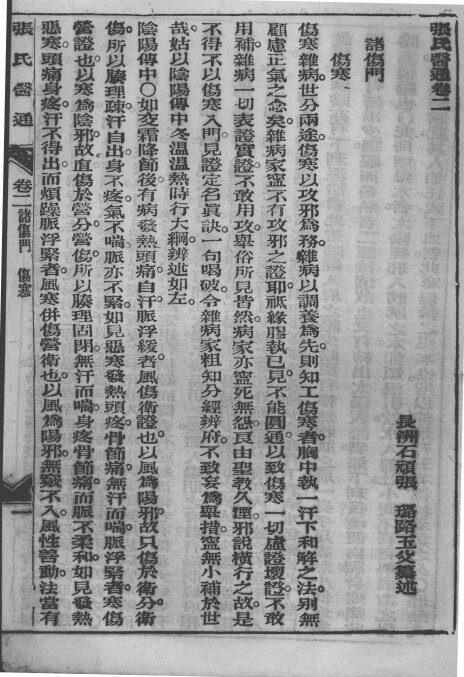 張氏醫通卷二
長洲石頑張　璐路玉父纂述
諸傷門
傷寒
傷寒雜病世分兩途。傷寒以攻邪為務。雜病以調養為先。則知工傷寒者。胸中執一汗下和解之法。別無
顧慮正氣之念矣。雜病家寧不有攻邪之證耶。祇緣膠執已見。不能圓通。以致傷寒一切虛證壞證。不敢
用補。雜病一切表證實證。不敢用攻。舉俗所見皆然。病家亦寧死無怨。良由聖教久湮。邪說橫行之故。是
不得不以傷寒入門見證定名真訣。一句喝破。令雜病家粗知分經辨府。不致妄為舉措。寧無小補於世
哉。姑以陰陽傳中冬溫溫熱時行大綱辨述如左。
陰陽傳中〇如交霜降節後。有病發熱頭痛。自汗脈浮緩者。風傷衛證也。以風為陽邪。故只傷於衛分。衛
傷。所以腠理疎。汗自出。身不疼。氣不喘。脈亦不緊。如見惡寒發熱頭疼。骨節痛。無汗而喘。脈浮緊者。寒傷
營證也。以寒為陰邪。故直傷於營分。營傷。所以腠理固閉。無汗而喘。身疼骨節痛。而脈不柔和。如見發熱
惡寒。頭痛身疼。汗不得出。而煩躁。脈浮緊者。風寒併傷營衛也。以風為陽邪。無竅不入。風性善動。法當有
張氏醫通　卷二　諸傷門　傷寒　一